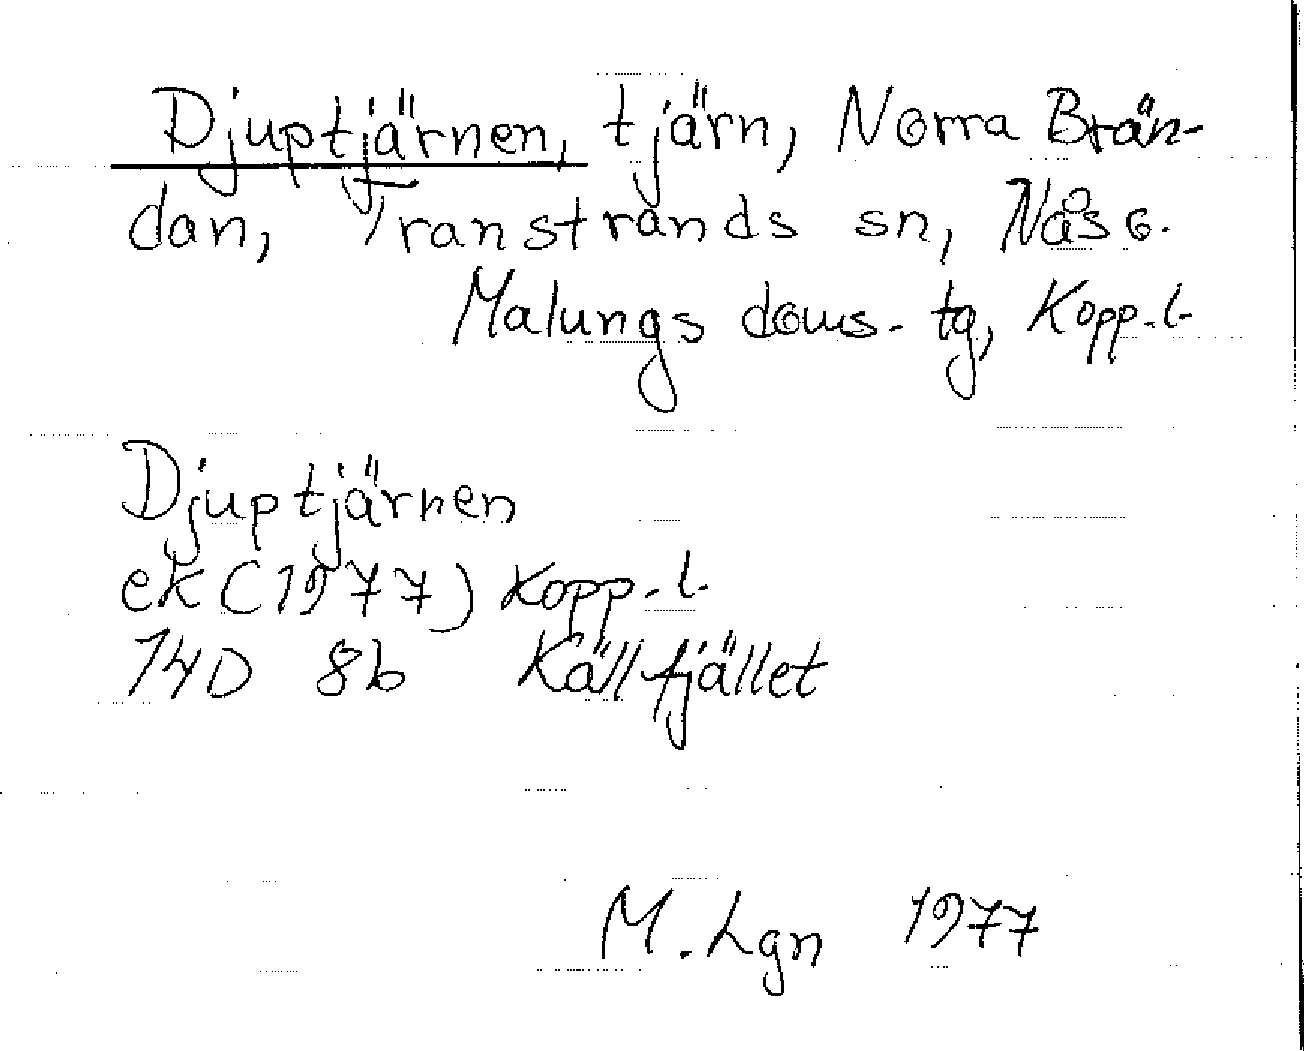 Djuptjärnen, tjärn, Norra Brän-
dan, Transtrands sn, Nås o.
Malungs doms. tg, Kopp. l.
Djuptjärnen
ek (1977) Kopp. l.
14D 8b Källfjället
M. Lgn 1977